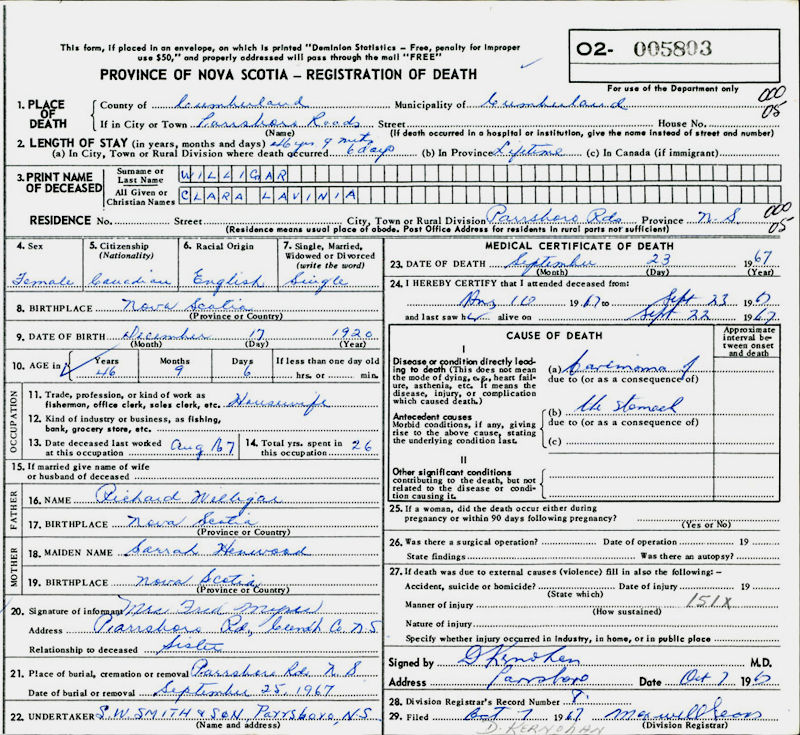 This form, if placed in an envelope, on which is printed "Dominion Statistics – Free, penalty for improper
use $50," and properly addressed will pass through the mail "FREE"
O2- 005803
PROVINCE OF NOVA SCOTIA – REGISTRATION OF DEATH
For use of the Department only
1. PLACE OF DEATH County of Cumberland Municipality of Cumberland 000
If in City or Town Parrsboro Roads Street House No. 05
(Name) (If death occurred in a hospital or institution, give the name instead of street and number)
2. LENGTH OF STAY (in years, months and days) 46 yrs 9 mths
(a) In City, Town or Rural Division where death occurred 6 days (b) In Province Lifetime (c) In Canada (if immigrant)
3. PRINT NAME OF DECEASED Surname or Last Name WILLIGAR
All Given or Christian Names CLARA LAVINIA
RESIDENCE No. Street City, Town or Rural Division Parrsboro Rds Province N.S. 000 05
(Residence means usual place of abode. Post Office Address for residents in rural parts not sufficient)
4. Sex Female
5. Citizenship (Nationality) Canadian
6. Racial Origin English
7. Single, Married, Widowed or Divorced (write the word) Single
8. BIRTHPLACE Nova Scotia
(Province or Country)
9. DATE OF BIRTH December 17 1920
(Month) (Day) (Year)
10. AGE in Years 46 Months 9 Days 6 If less than one day old hrs. or min.
OCCUPATION
11. Trade, profession, or kind of work as
fisherman, office clerk, sales clerk, etc. Housewife
12. Kind of industry or business, as fishing,
bank, grocery store, etc.
13. Date deceased last worked at this occupation Aug /67
14. Total yrs. spent in this occupation 26
15. If married give name of wife
or husband of deceased
FATHER
16. NAME Richard Willigar
17. BIRTHPLACE Nova Scotia
(Province or Country)
MOTHER
18. MAIDEN NAME Sarrah Henwood
19. BIRTHPLACE Nova Scotia
(Province or Country)
20. Signature of informant Mrs Fred
Address Parrsboro Rd, Cumb Co. N.S
Relationship to deceased Sister
21. Place of burial, cremation or removal Parrsboro Rds N S
Date of burial or removal September 25, 1967
22. UNDERTAKER S.W. SMITH & SON PARRSBORO, N.S.
(Name and address)
MEDICAL CERTIFICATE OF DEATH
23. DATE OF DEATH September 23 1967
(Month) (Day) (Year)
24. I HEREBY CERTIFY that I attended deceased from:
Aug 1967 to Sept 23 1967
and last saw her alive on Sept 22 1967
CAUSE OF DEATH
Approximate interval between onset and death
I
Disease or condition directly leading to death (This does not mean the mode of dying, e.g., heart failure, asthenia, etc. It means the disease, injury, or complication which caused death.)
(a) Carcinoma of
due to (or as a consequence of)
Antecedent causes
Morbid conditions, if any, giving rise to the above cause, stating the underlying condition last.
(b) the stomach
due to (or as a consequence of)
(c)
II
Other significant conditions
contributing to the death, but not related to the disease or condition causing it.
25. If a woman, did the death occur either during
pregnancy or within 90 days following pregnancy?
(Yes or No)
26. Was there a surgical operation? Date of operation 19
State findings Was there an autopsy?
27. If death was due to external causes (violence) fill in also the following:–
Accident, suicide or homicide? Date of injury 19
(State which)
Manner of injury 151X
(How sustained)
Nature of injury
Specify whether injury occurred in industry, in home, or in public place
Signed by D Kernohan M.D.
Address Parrsboro Date Oct 7 1967
28. Division Registrar's Record Number
29. Filed Oct 7 1967
(Division Registrar)
D. KERNOHAN